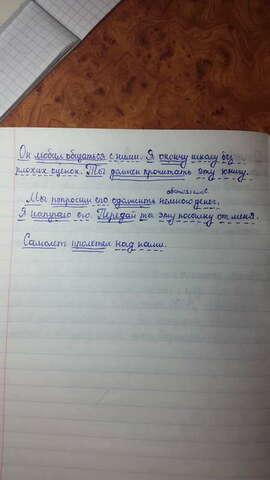 Он любил общаться с ними. Я окончу школу без
плохих оценок. Ты должен прочитать эту книгу.
Мы попросим его одолжить немного денег.
Я напугаю его. Передай ту эту посылку от меня.
Самолет пролетел над нами.